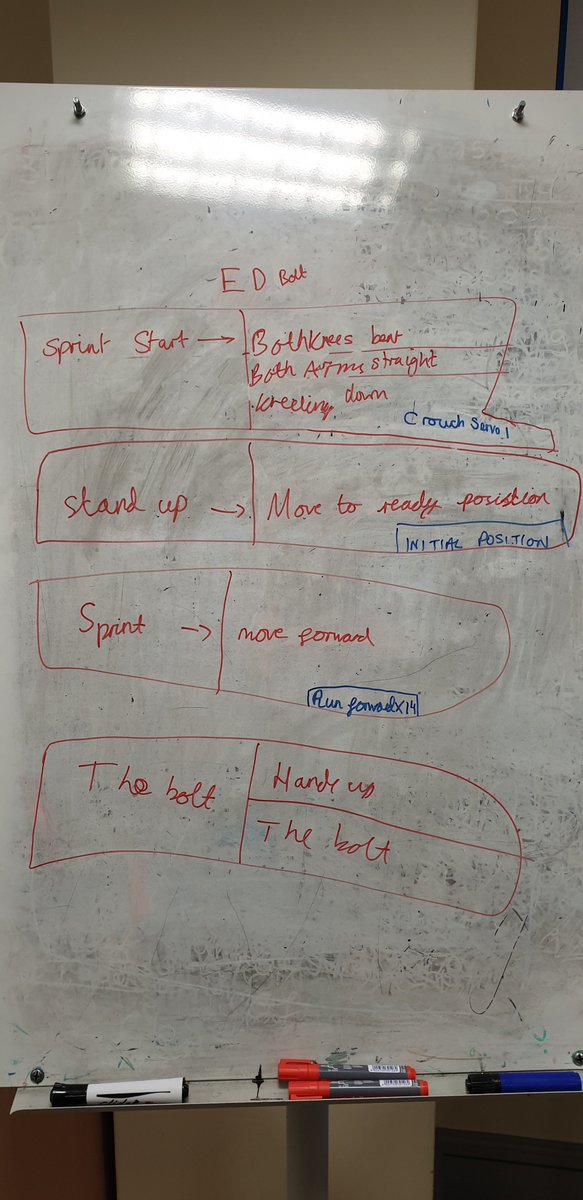 ED Bolt
Sprint Start → Both Knees bent
Both Arms straight
kneeling down
Crouch Servo 1
Stand up → Move to ready posistion
INITIAL POSITION
Sprint → move forward
Run forward x 14
The bolt
Hands up
The bolt